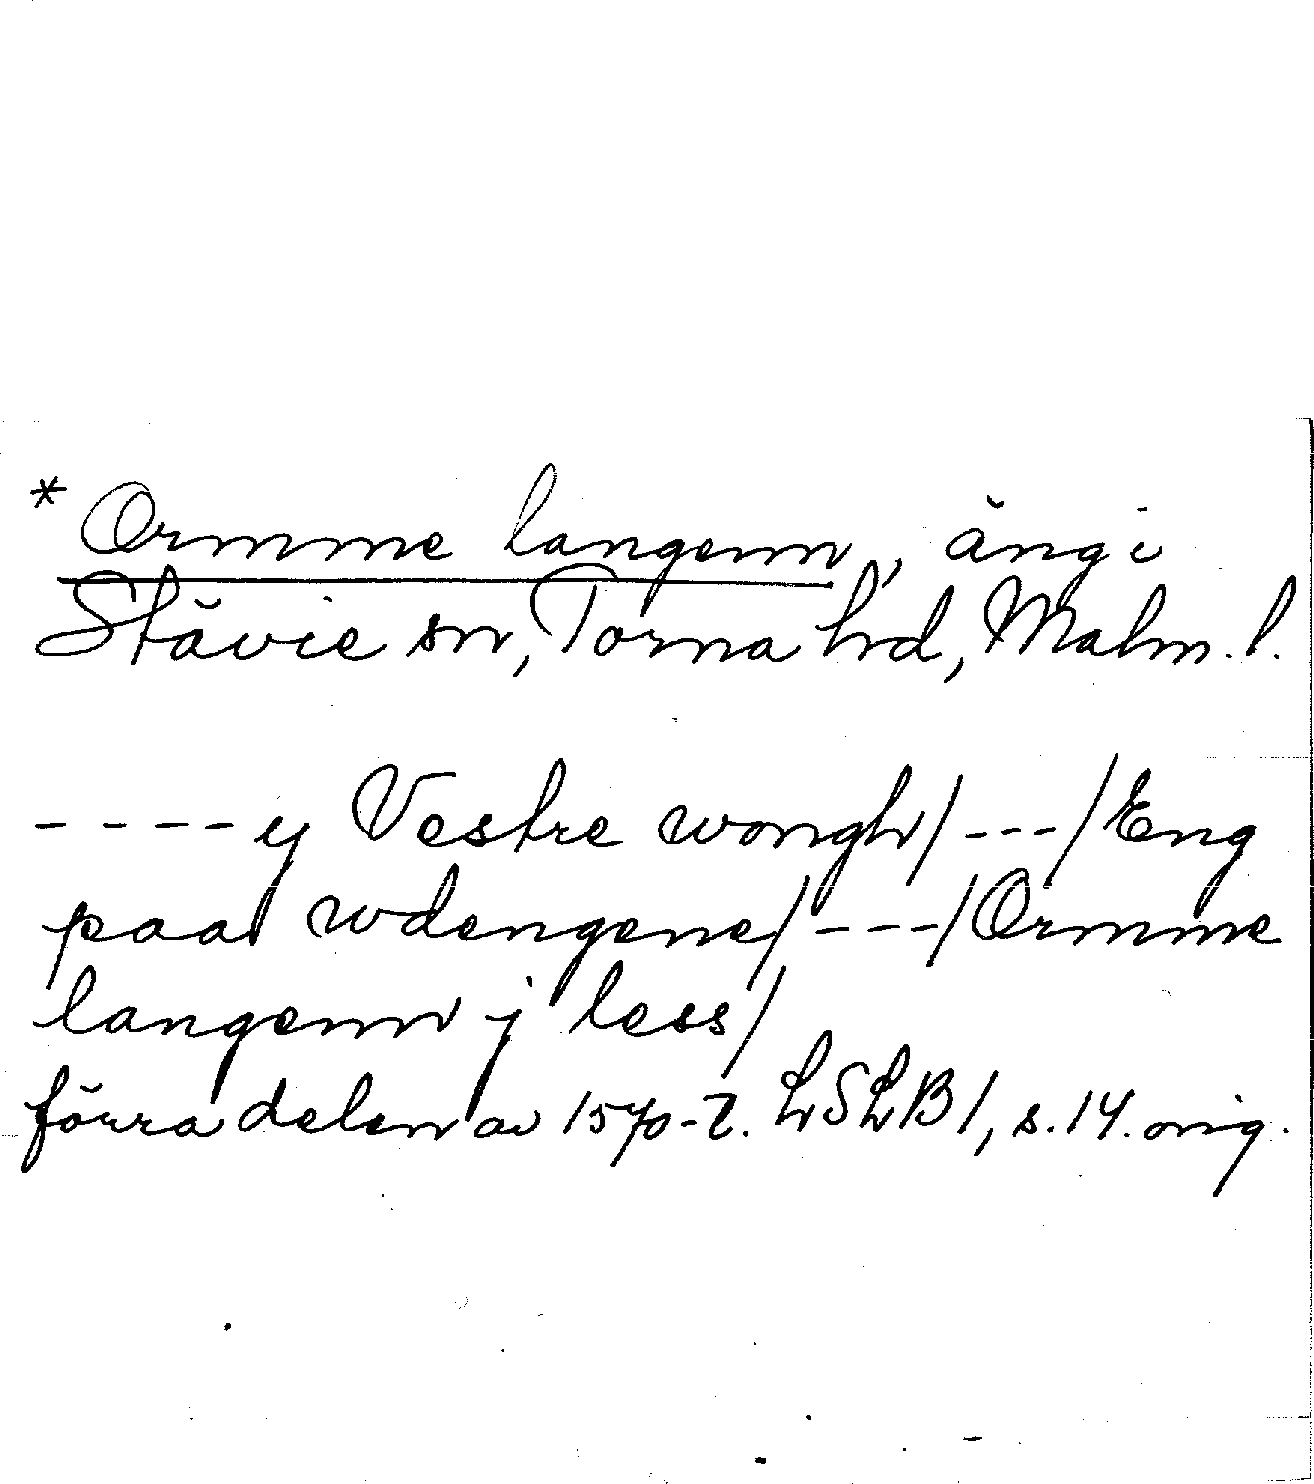 * Ormme langenn, äng i
Stävie sn, Torna hrd, Malm. l.
----y Vestre wongh/---/Eng
paa wdengene/---/Ormme
langenn j less/
förra delen av 1570-t. LSLB 1, s. 14. orig.